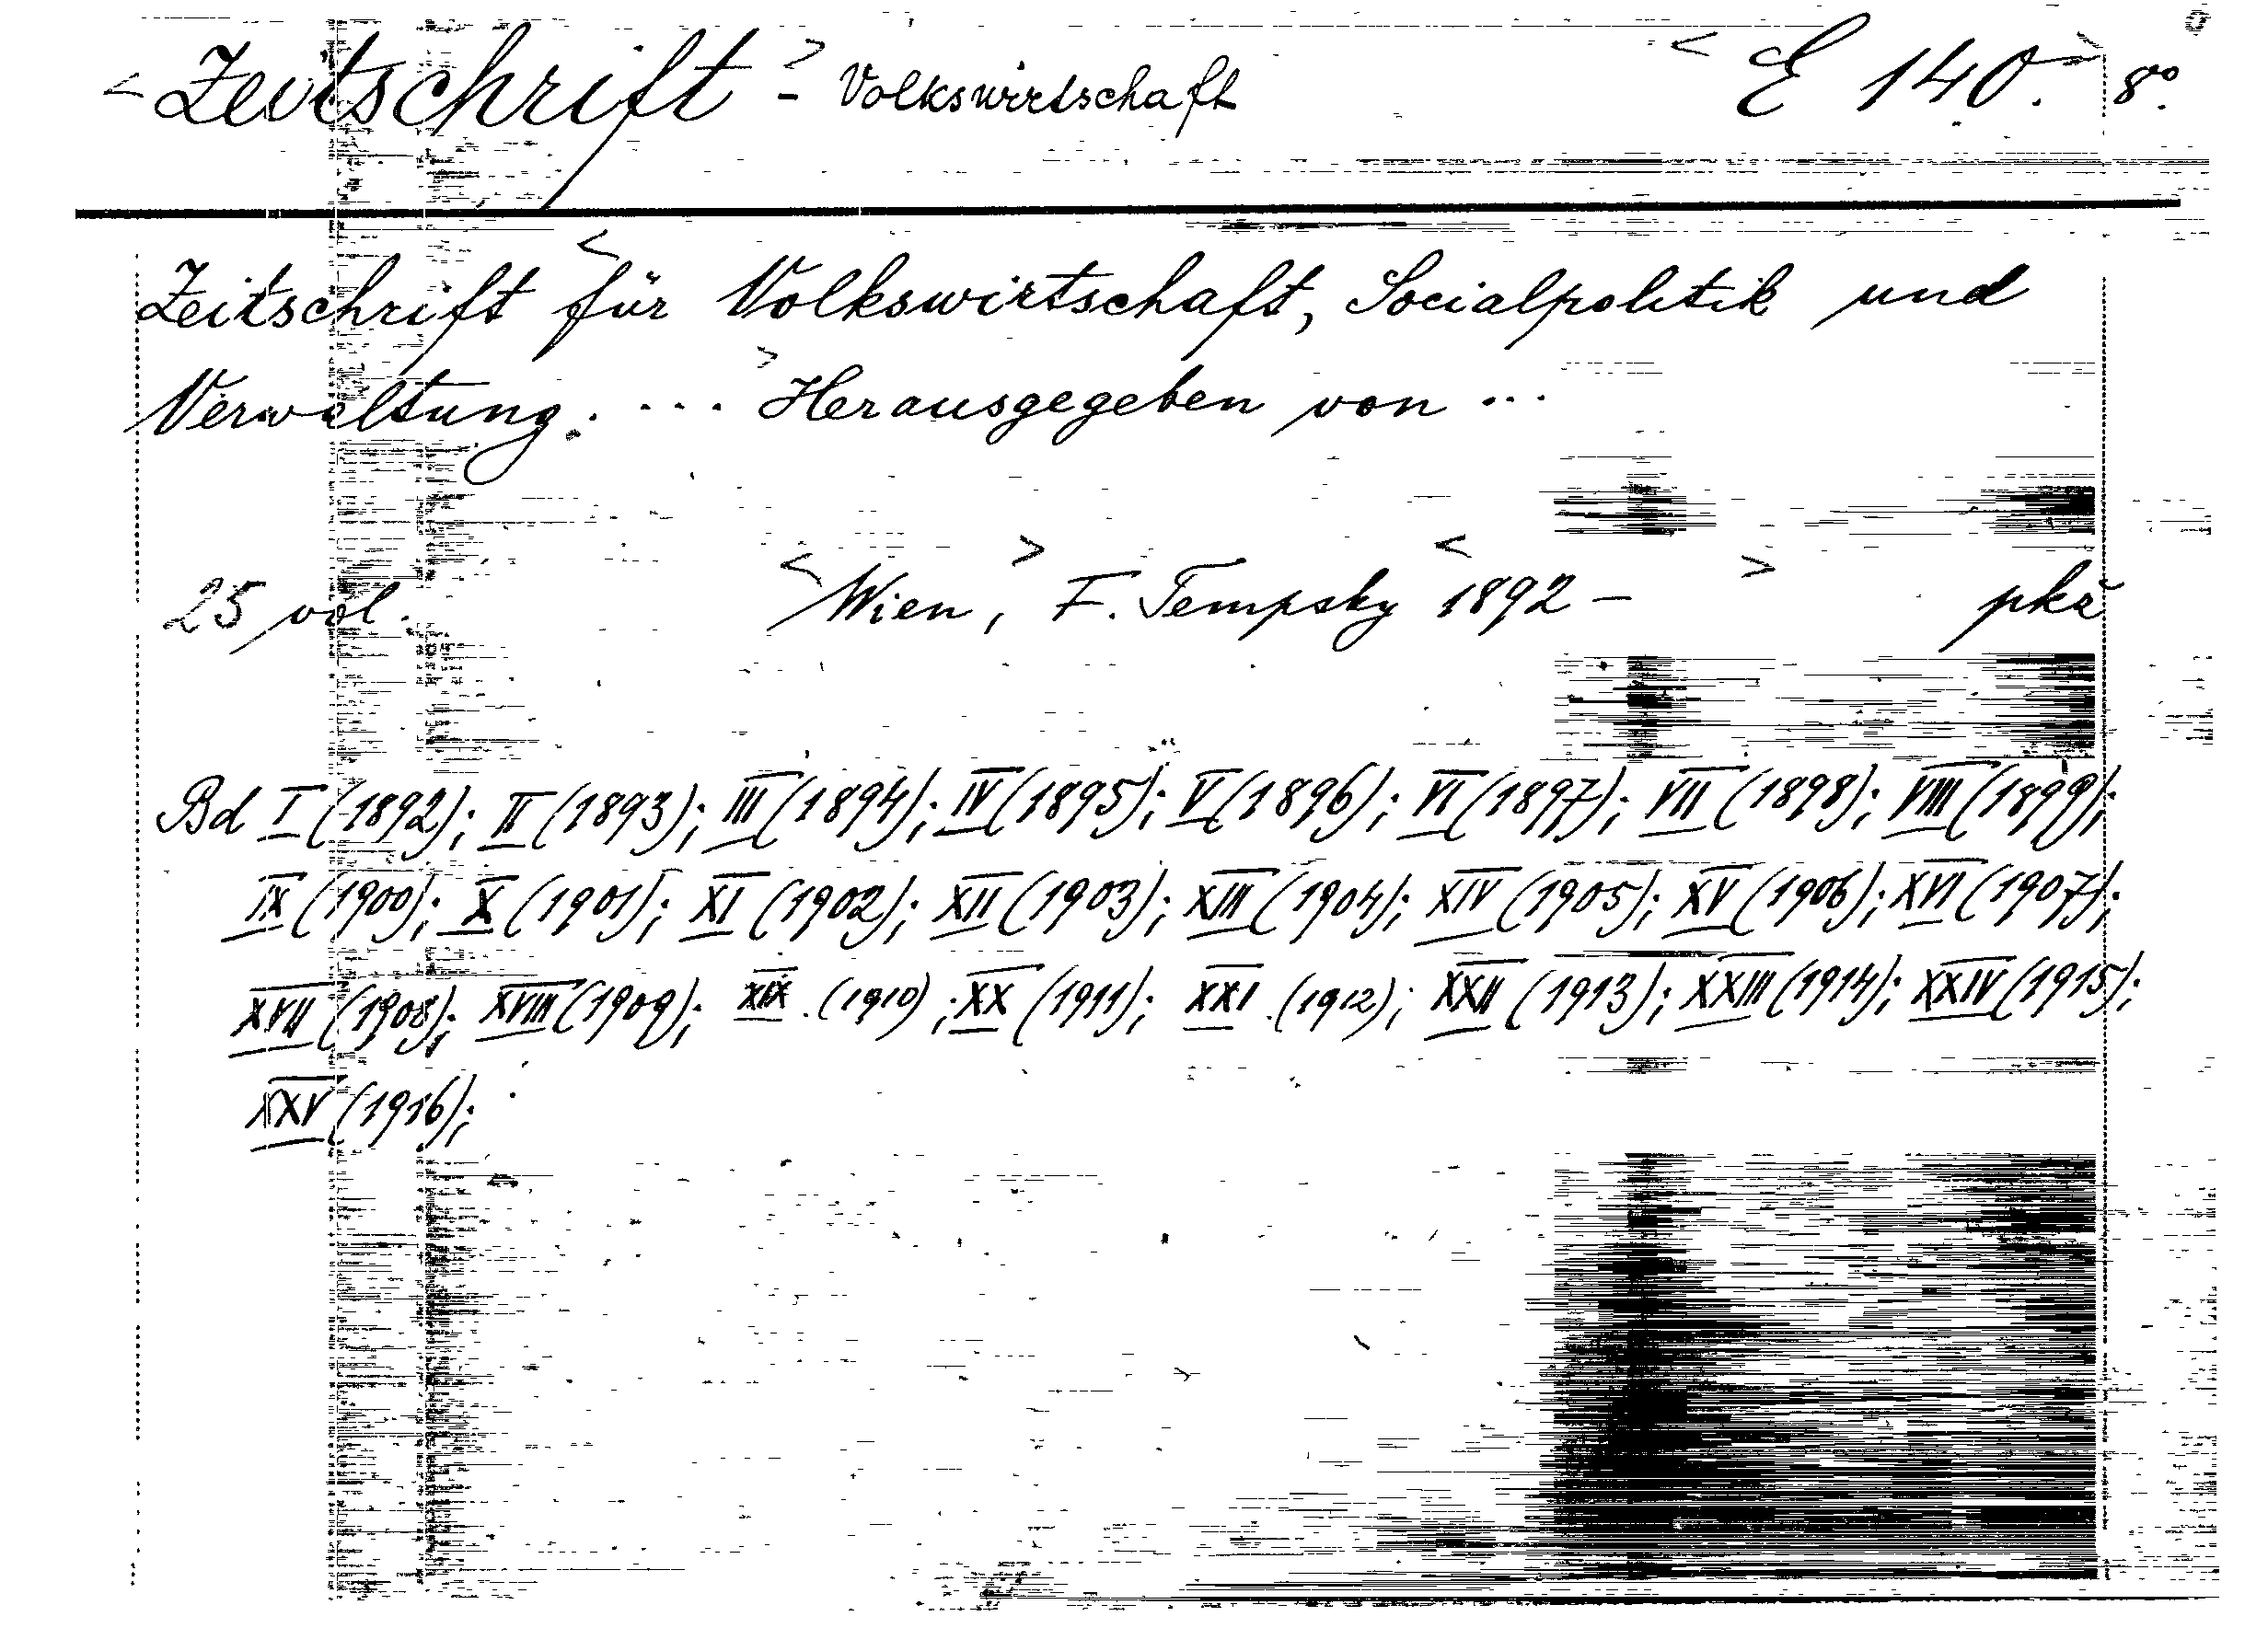 < Zeitschrift > - Volkswirtschaft < E 140. > 8º.
Zeitschrift < für Volkswirtschaft, Socialpolitik und
Verwaltung. ... > Herausgegeben von ...
25 vol. < Wien, > F. Tempsky < 1892 - > pkž
Bd I (1892); II (1893); III (1894); IV (1895); V (1896); VI (1897); VII (1898); VIII (1899);
IX (1900); X (1901); XI (1902); XII (1903); XIII (1904); XIV (1905); XV (1906); XVI (1907);
XVII (1908); XVIII (1909); XIX (1910); XX (1911); XXI (1912); XXII (1913); XXIII (1914); XXIV (1915);
XXV (1916);